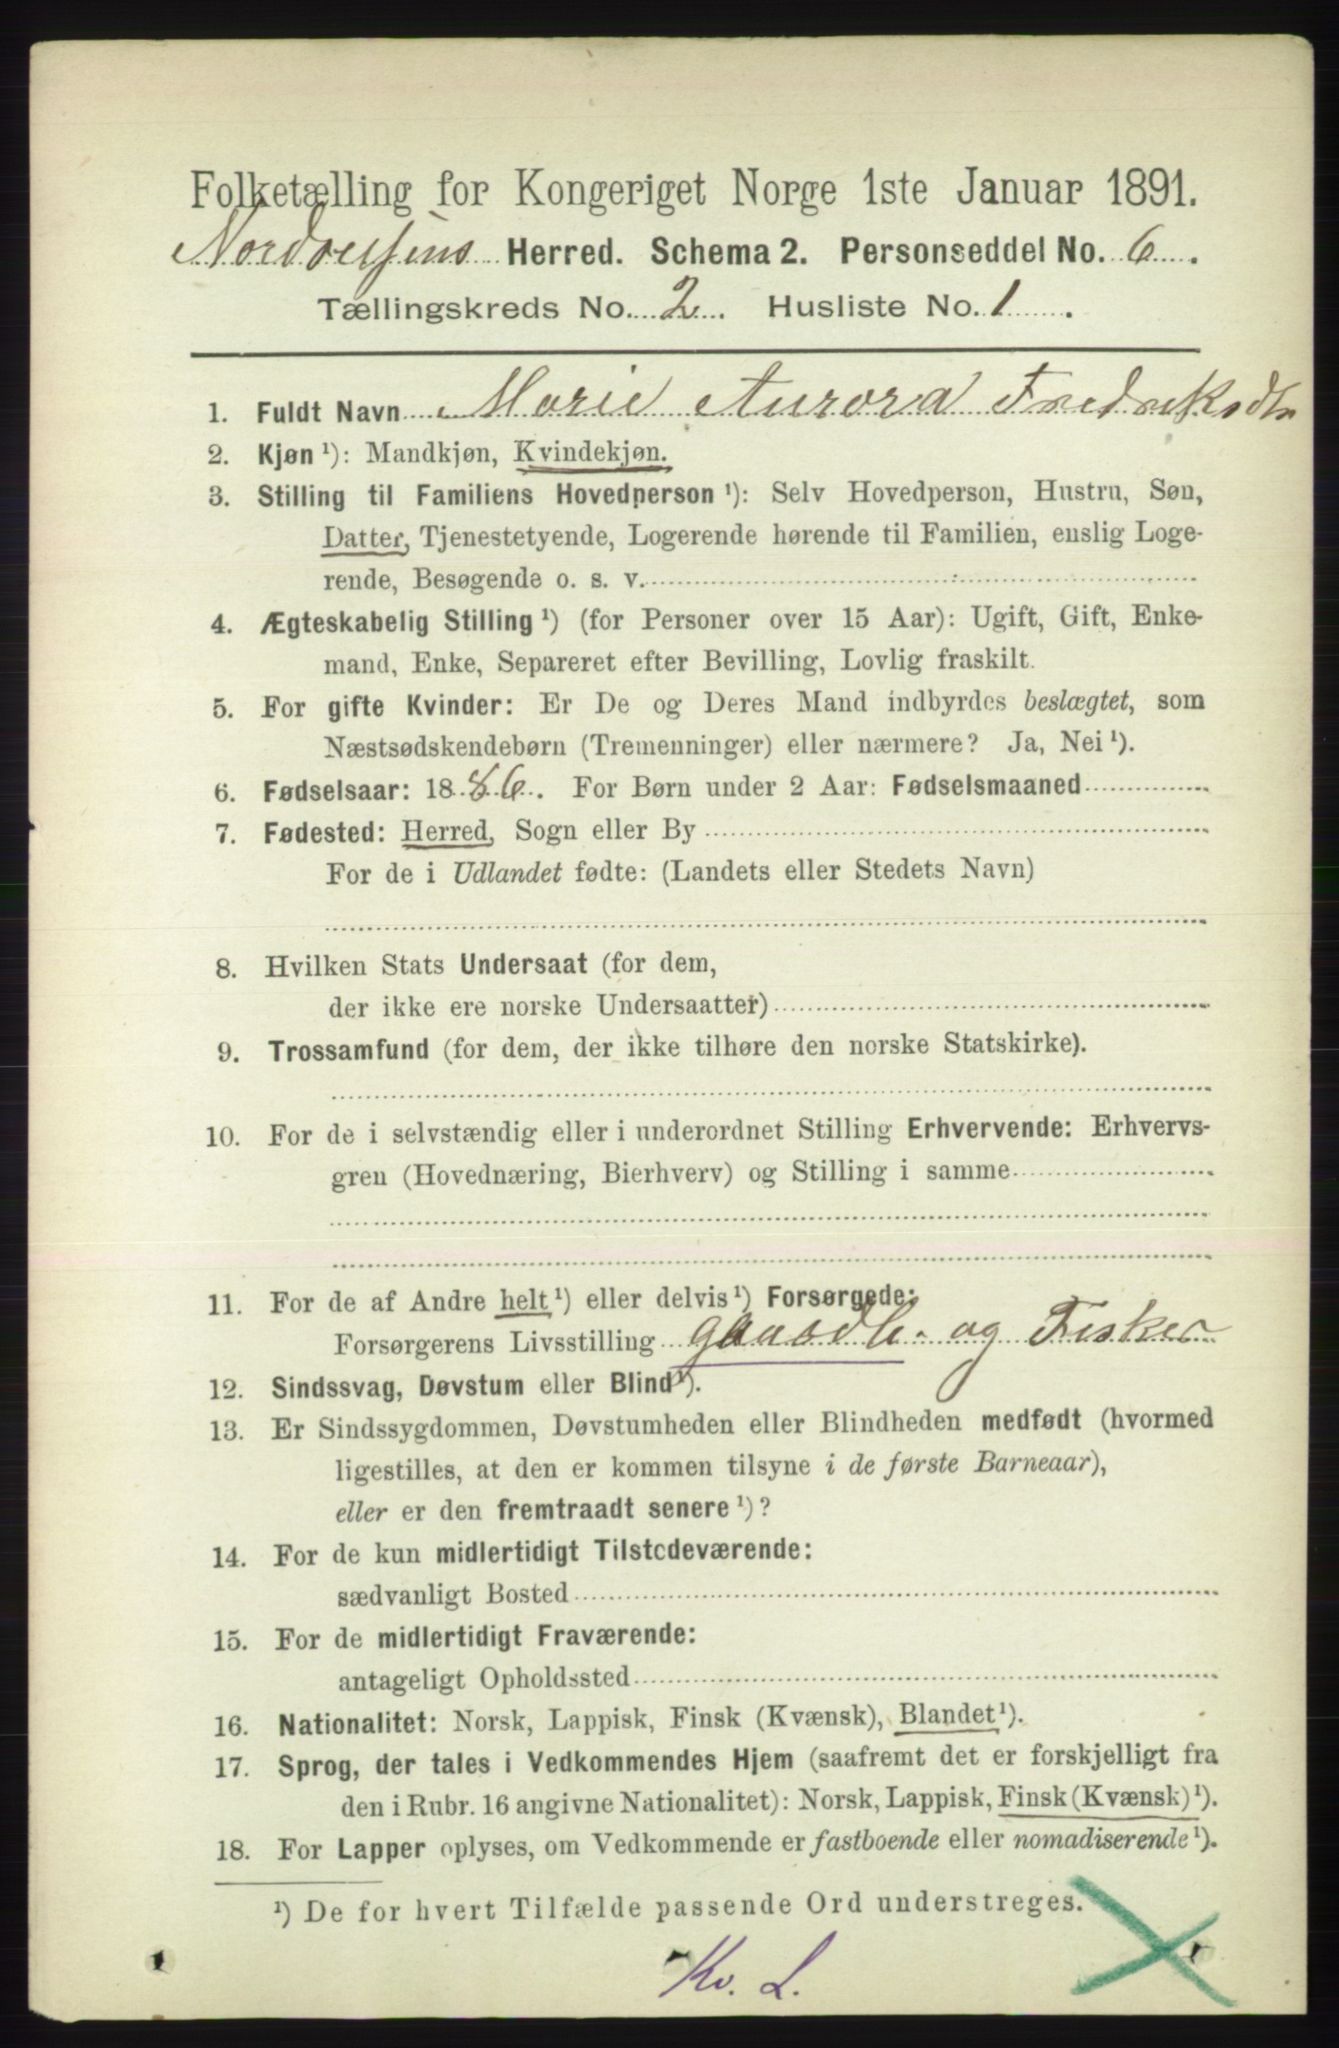 Folketælling for Kongeriget Norge 1ste Januar 1891.
Herred. Schema 2. Personseddel No. 6.
Tællingskreds No. 2. Husliste No. 1.
1. Fuldt Navn Marie Aurora Fredriksdtr
2. Kjøn ¹): Mandkjøn, Kvindekjøn.
3. Stilling til Familiens Hovedperson ¹): Selv Hovedperson, Hustru, Søn,
Datter, Tjenestetyende, Logerende hørende til Familien, enslig Loge-
rende, Besøgende o. s. v.
4. Ægteskabelig Stilling ¹) (for Personer over 15 Aar): Ugift, Gift, Enke-
mand, Enke, Separeret efter Bevilling, Lovlig fraskilt.
5. For gifte Kvinder: Er De og Deres Mand indbyrdes beslægtet, som
Næstsødskendebørn (Tremenninger) eller nærmere? Ja, Nei ¹).
6. Fødselsaar: 1886. For Børn under 2 Aar: Fødselsmaaned
7. Fødested: Herred, Sogn eller By
For de i Udlandet fødte: (Landets eller Stedets Navn)
8. Hvilken Stats Undersaat (for dem,
der ikke ere norske Undersaatter)
9. Trossamfund (for dem, der ikke tilhøre den norske Statskirke).
10. For de i selvstændig eller i underordnet Stilling Erhvervende: Erhvervs-
gren (Hovednæring, Bierhverv) og Stilling i samme
11. For de af Andre helt ¹) eller delvis ¹) Forsørgede:
Forsørgerens Livsstilling og Fisker
12. Sindssvag, Døvstum eller Blind ¹).
13. Er Sindssygdommen, Døvstumheden eller Blindheden medfødt (hvormed
ligestilles, at den er kommen tilsyne i de første Barneaar),
eller er den fremtraadt senere ¹)?
14. For de kun midlertidigt Tilstedeværende:
sædvanligt Bosted
15. For de midlertidigt Fraværende:
antageligt Opholdssted
16. Nationalitet: Norsk, Lappisk, Finsk (Kvænsk), Blandet ¹).
17. Sprog, der tales i Vedkommendes Hjem (saafremt det er forskjelligt fra
den i Rubr. 16 angivne Nationalitet): Norsk, Lappisk, Finsk (Kvænsk) ¹).
18. For Lapper oplyses, om Vedkommende er fastboende eller nomadiserende ¹).
¹) De for hvert Tilfælde passende Ord understreges.
Kv. L.